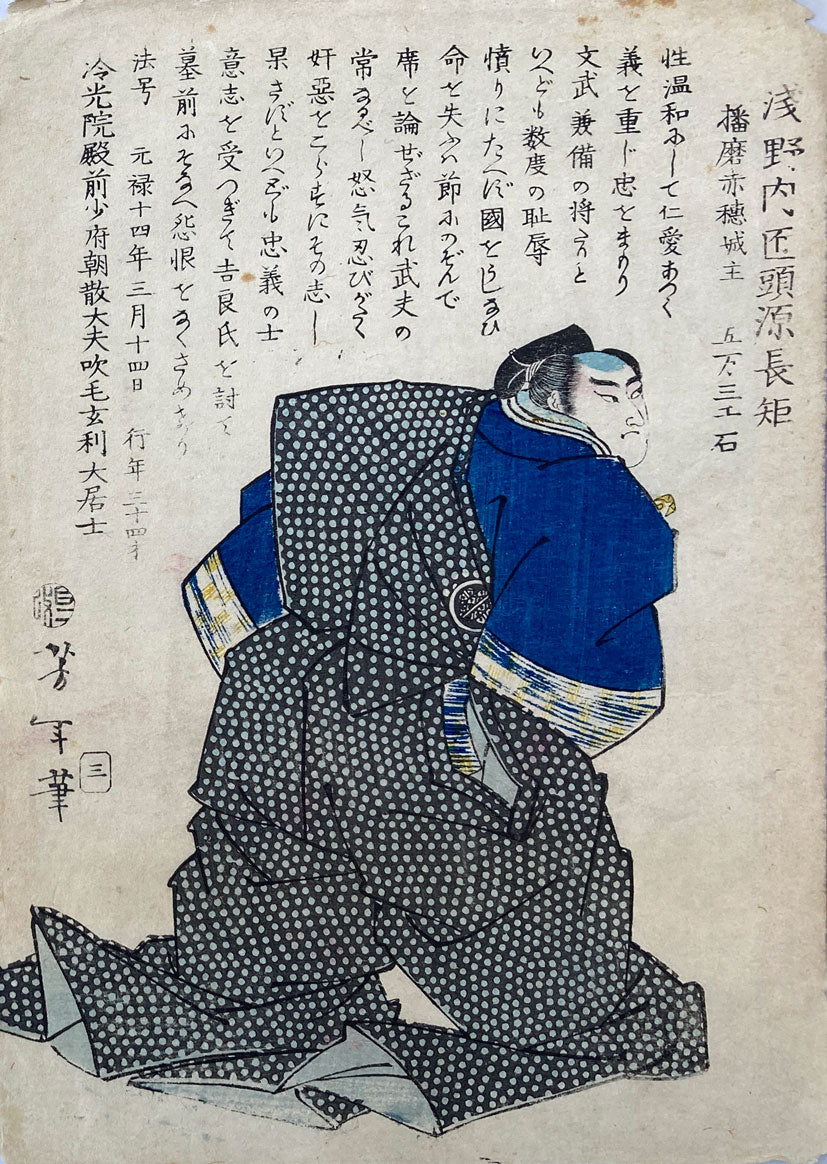 浅野内匠頭源長矩
播磨赤穂城主 五万三千石
性温和にして仁愛あつく
義を重じ忠をまもり
文武兼備の将たりと
いへども数度の恥辱
憤りにたへず國をうしなひ
命を失ふハ節にのぞんで
席を論ぜざるこれ武夫の
常なるべし怒気忍びがたく
奸惡をこらすにその志し
果さずといへども忠義の士
意志を受つぎて吉良氏を討て
墓前にそなへ怨恨をなくさめ
法号 元禄十四年三月十四日 行年三十四才
冷光院殿前少府朝散大夫吹毛玄利大居士
芳年筆
三